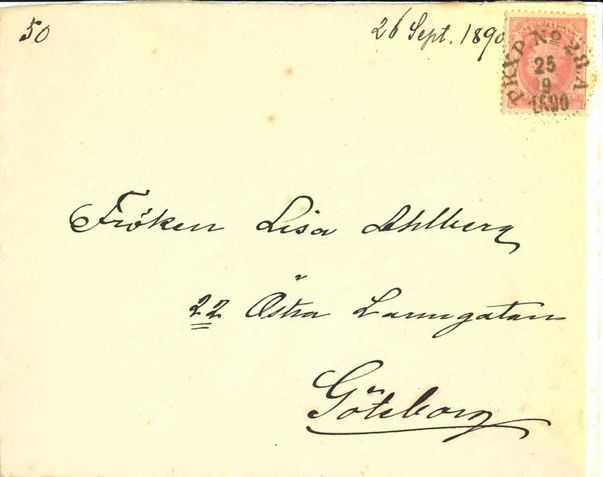 50
26 Sept. 1890
PKXP No 28.A
25
9
1890
Fröken Lisa Ahlberg
22 Östra Larmgatan
Göteborg